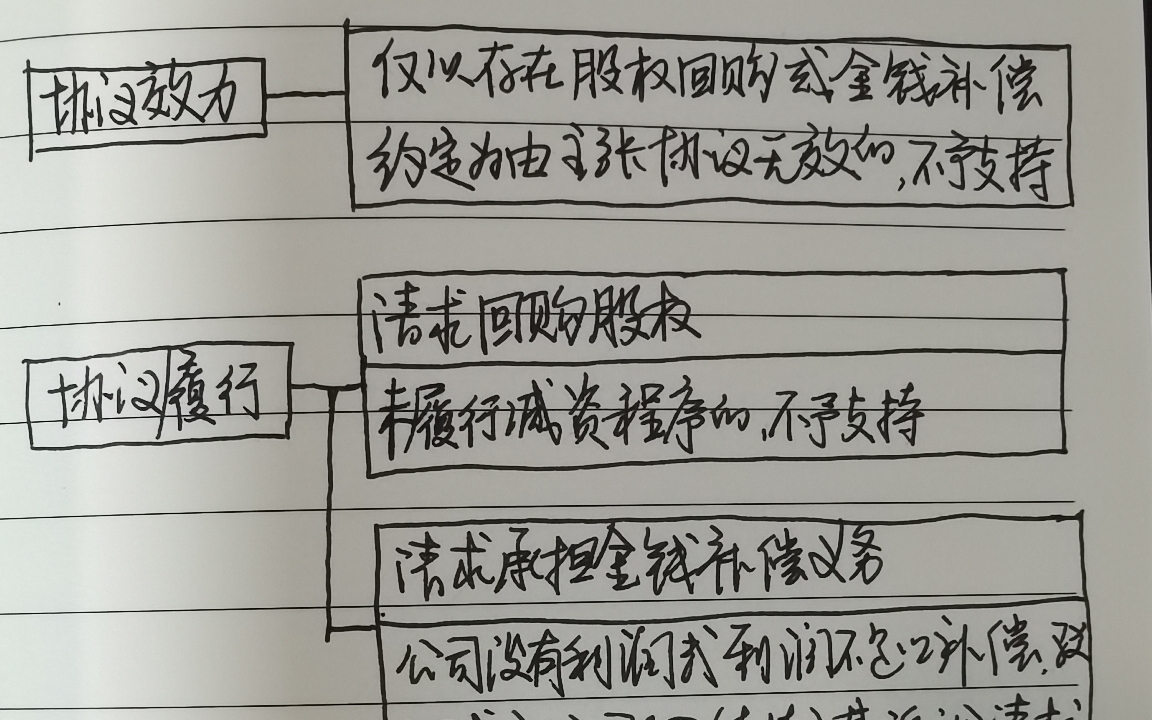 协议效力
仅以存在股权回购或金钱补偿
约定为由主张协议无效的,不予支持
协议履行
请求回购股权
未履行减资程序的,不予支持
请求承担金钱补偿义务
公司没有利润或利润不足以补偿,驳